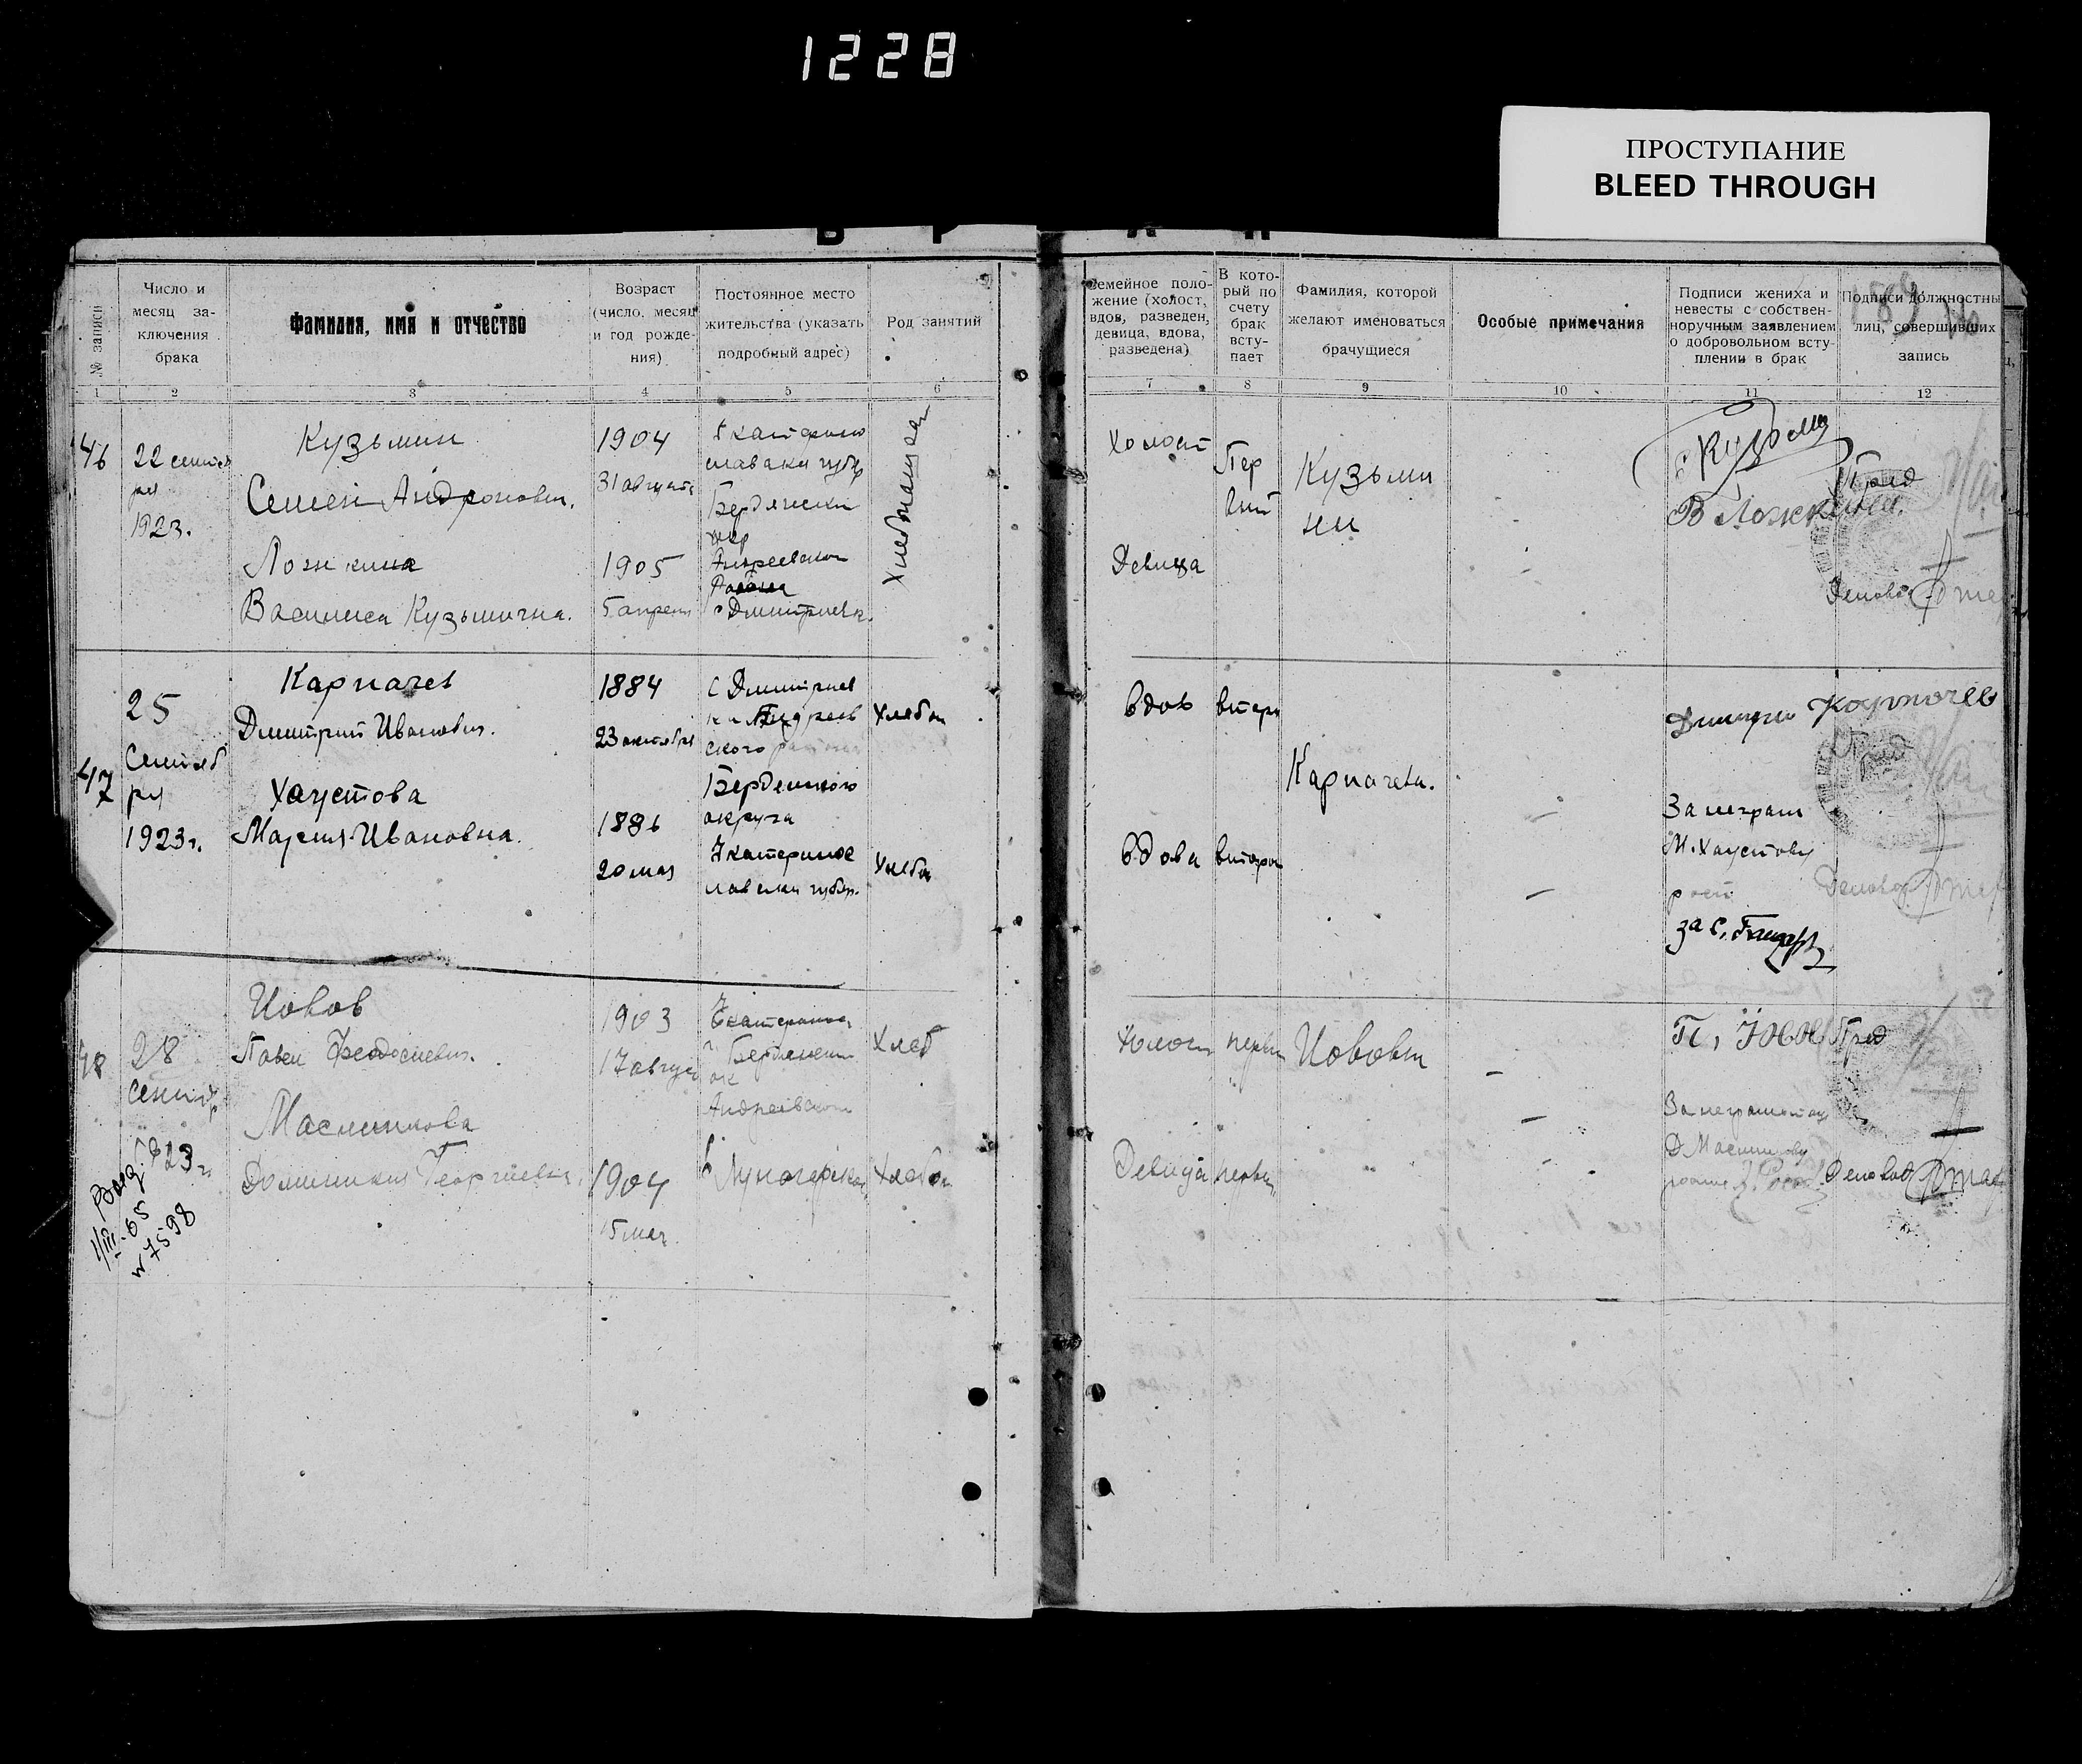 1228
ПРОСТУПАНИЕ
BLEED THROUGH
Б Р А К
№ записи
Число и месяц заключения брака
Фамилия, имя и отчество
Возраст
(число, месяц
и год рожде-
ния)
Постоянное место
жительства (указать
подробный адрес)
Род занятий
Семейное поло-
жение (холост,
вдов, разведен,
девица, вдова,
разведена)
В кото-
рый по
счету
брак
всту-
пает
Фамилия, которой
желают именоваться
брачущиеся
Особые примечания
Подписи жениха и
невесты с собствен-
норучным заявлением
о добровольном всту-
плении в брак
Подписи должностны
лиц, совершивших
запись
189
1 2 3 4 5 6 7 8 9 10 11 12
46
22 сентяб
ря
1923.
Кузьмин
Семен Андронович.
Ложкина
Василиса Кузьминична.
1904
31 август
1905
5 апреля
Екатерино
славски губер
Бердянски
окр
Андреевской
Района
с Дмитриевка.
Хлебопашец
Холост
Девица
Пер
вый
Кузьми
ны
С Кузьмин
В Ложкина.
Пред
Деловод
47
25
Сентяб
ря
1923 г.
Карпачев
Дмитрий Иванович.
Хаустова
Мария Ивановна.
1884
23 октября
1886
20 мая
С Дмитриев
ки Андреев
ского района
Бердянского
округа
Екатеринос
лавски губер.
Хлебоп
Хлебоп
вдов
вдова
вторы
второй
Карпачевы.
Дмитрий Карпочев
Пред
За неграм
М. Хаустову
расп
за С.
Деловод
48
28
Сентяб
1923 г.
Иовов
Павел Феодосиевич.
Маслинкова
Доминикия Георгиевна.
1903
17 август
1904
15 мая
Екатеринос
г Бердянски
ок
Андреевской
с Луногорка
Хлеб
Хлебоп
Холост
Девица
первый
первый
Иововы
П. Иовов
Пред
За неграмотну
Д Маслинкову
Деловод
1/III-65
№ 7598